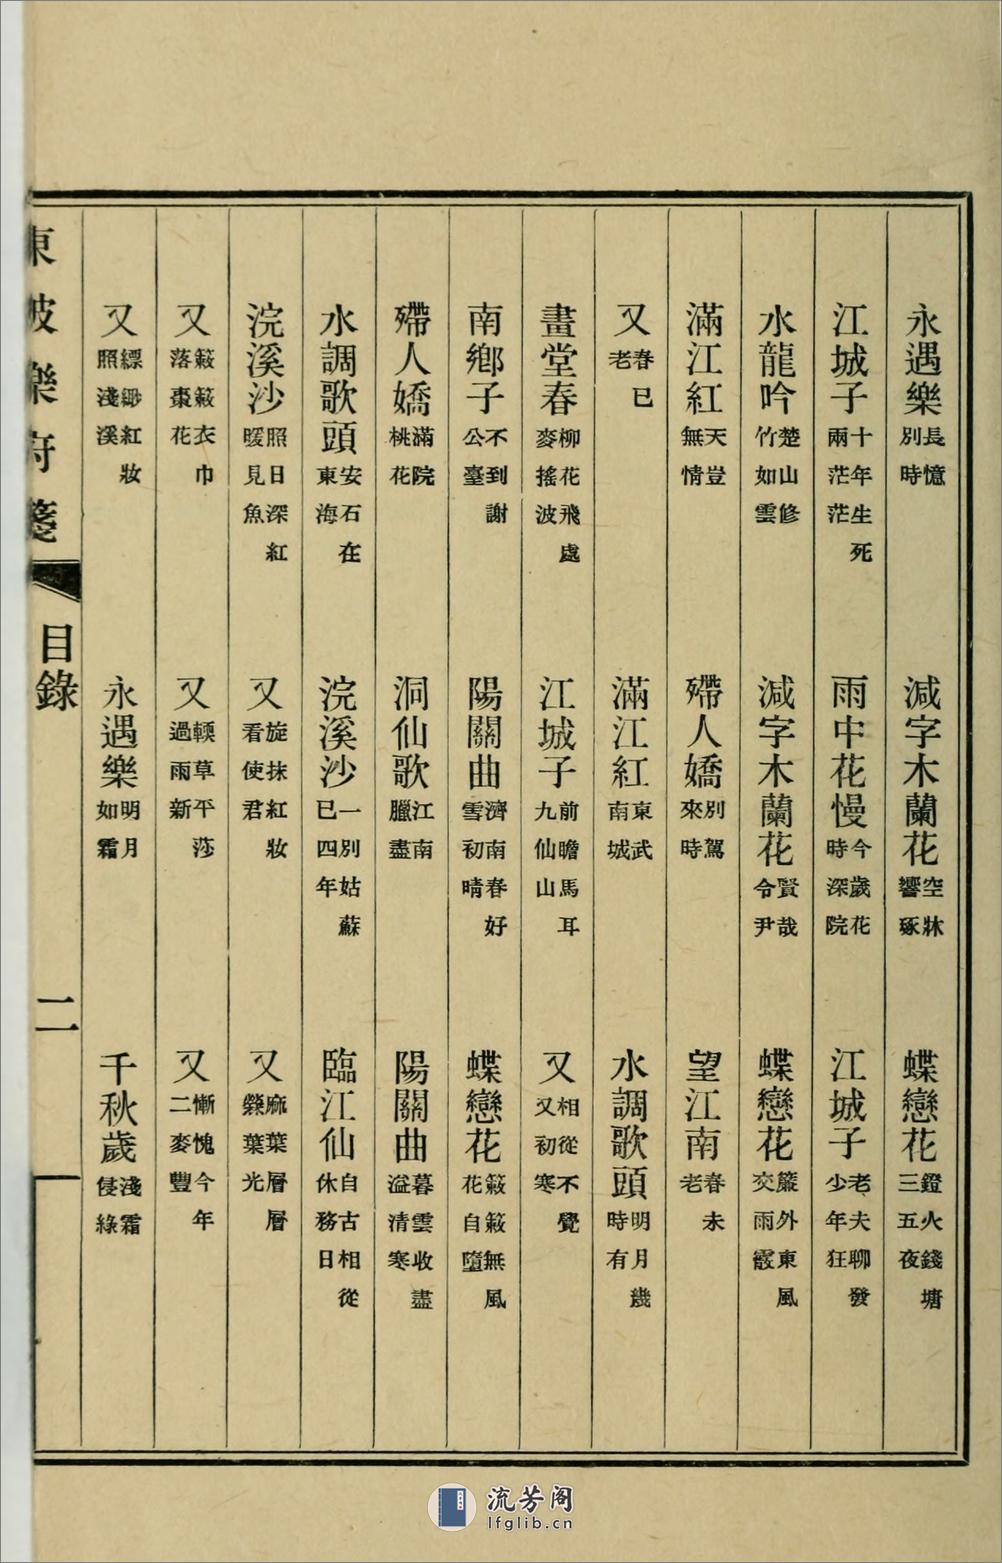 永遇樂長憶別時 減字木蘭花空牀響琢 蝶戀花鐙火錢塘三五夜
江城子十年生死兩茫茫 雨中花慢今歲花時深院 江城子老夫聊發少年狂
水龍吟楚山修竹如雲 減字木蘭花賢哉令尹 蝶戀花簾外東風交雨霰
滿江紅天豈無情 殢人嬌別駕來時 望江南春未老
又春已老 滿江紅東武南城 水調歌頭明月幾時有
畫堂春柳花飛處麥搖波 江城子前瞻馬耳九仙山 又相從不覺又初寒
南鄉子不到謝公臺 陽關曲濟南春好雪初晴 蝶戀花簌簌無風花自墮
殢人嬌滿院桃花 洞仙歌江南臘盡 陽關曲暮雲收盡溢清寒
水調歌頭安石在東海 浣溪沙一別姑蘇已四年 臨江仙自古相從休務日
浣溪沙照日深紅暖見魚 又旋抹紅妝看使君 又麻葉層層檾葉光
又簌簌衣巾落棗花 又輭草平莎過雨新 又慚愧今年二麥豐
又縹緲紅妝照淺溪 永遇樂明月如霜 千秋歲淺霜侵綠
東坡樂府箋 目錄 二
流芳阁
lfglib.cn